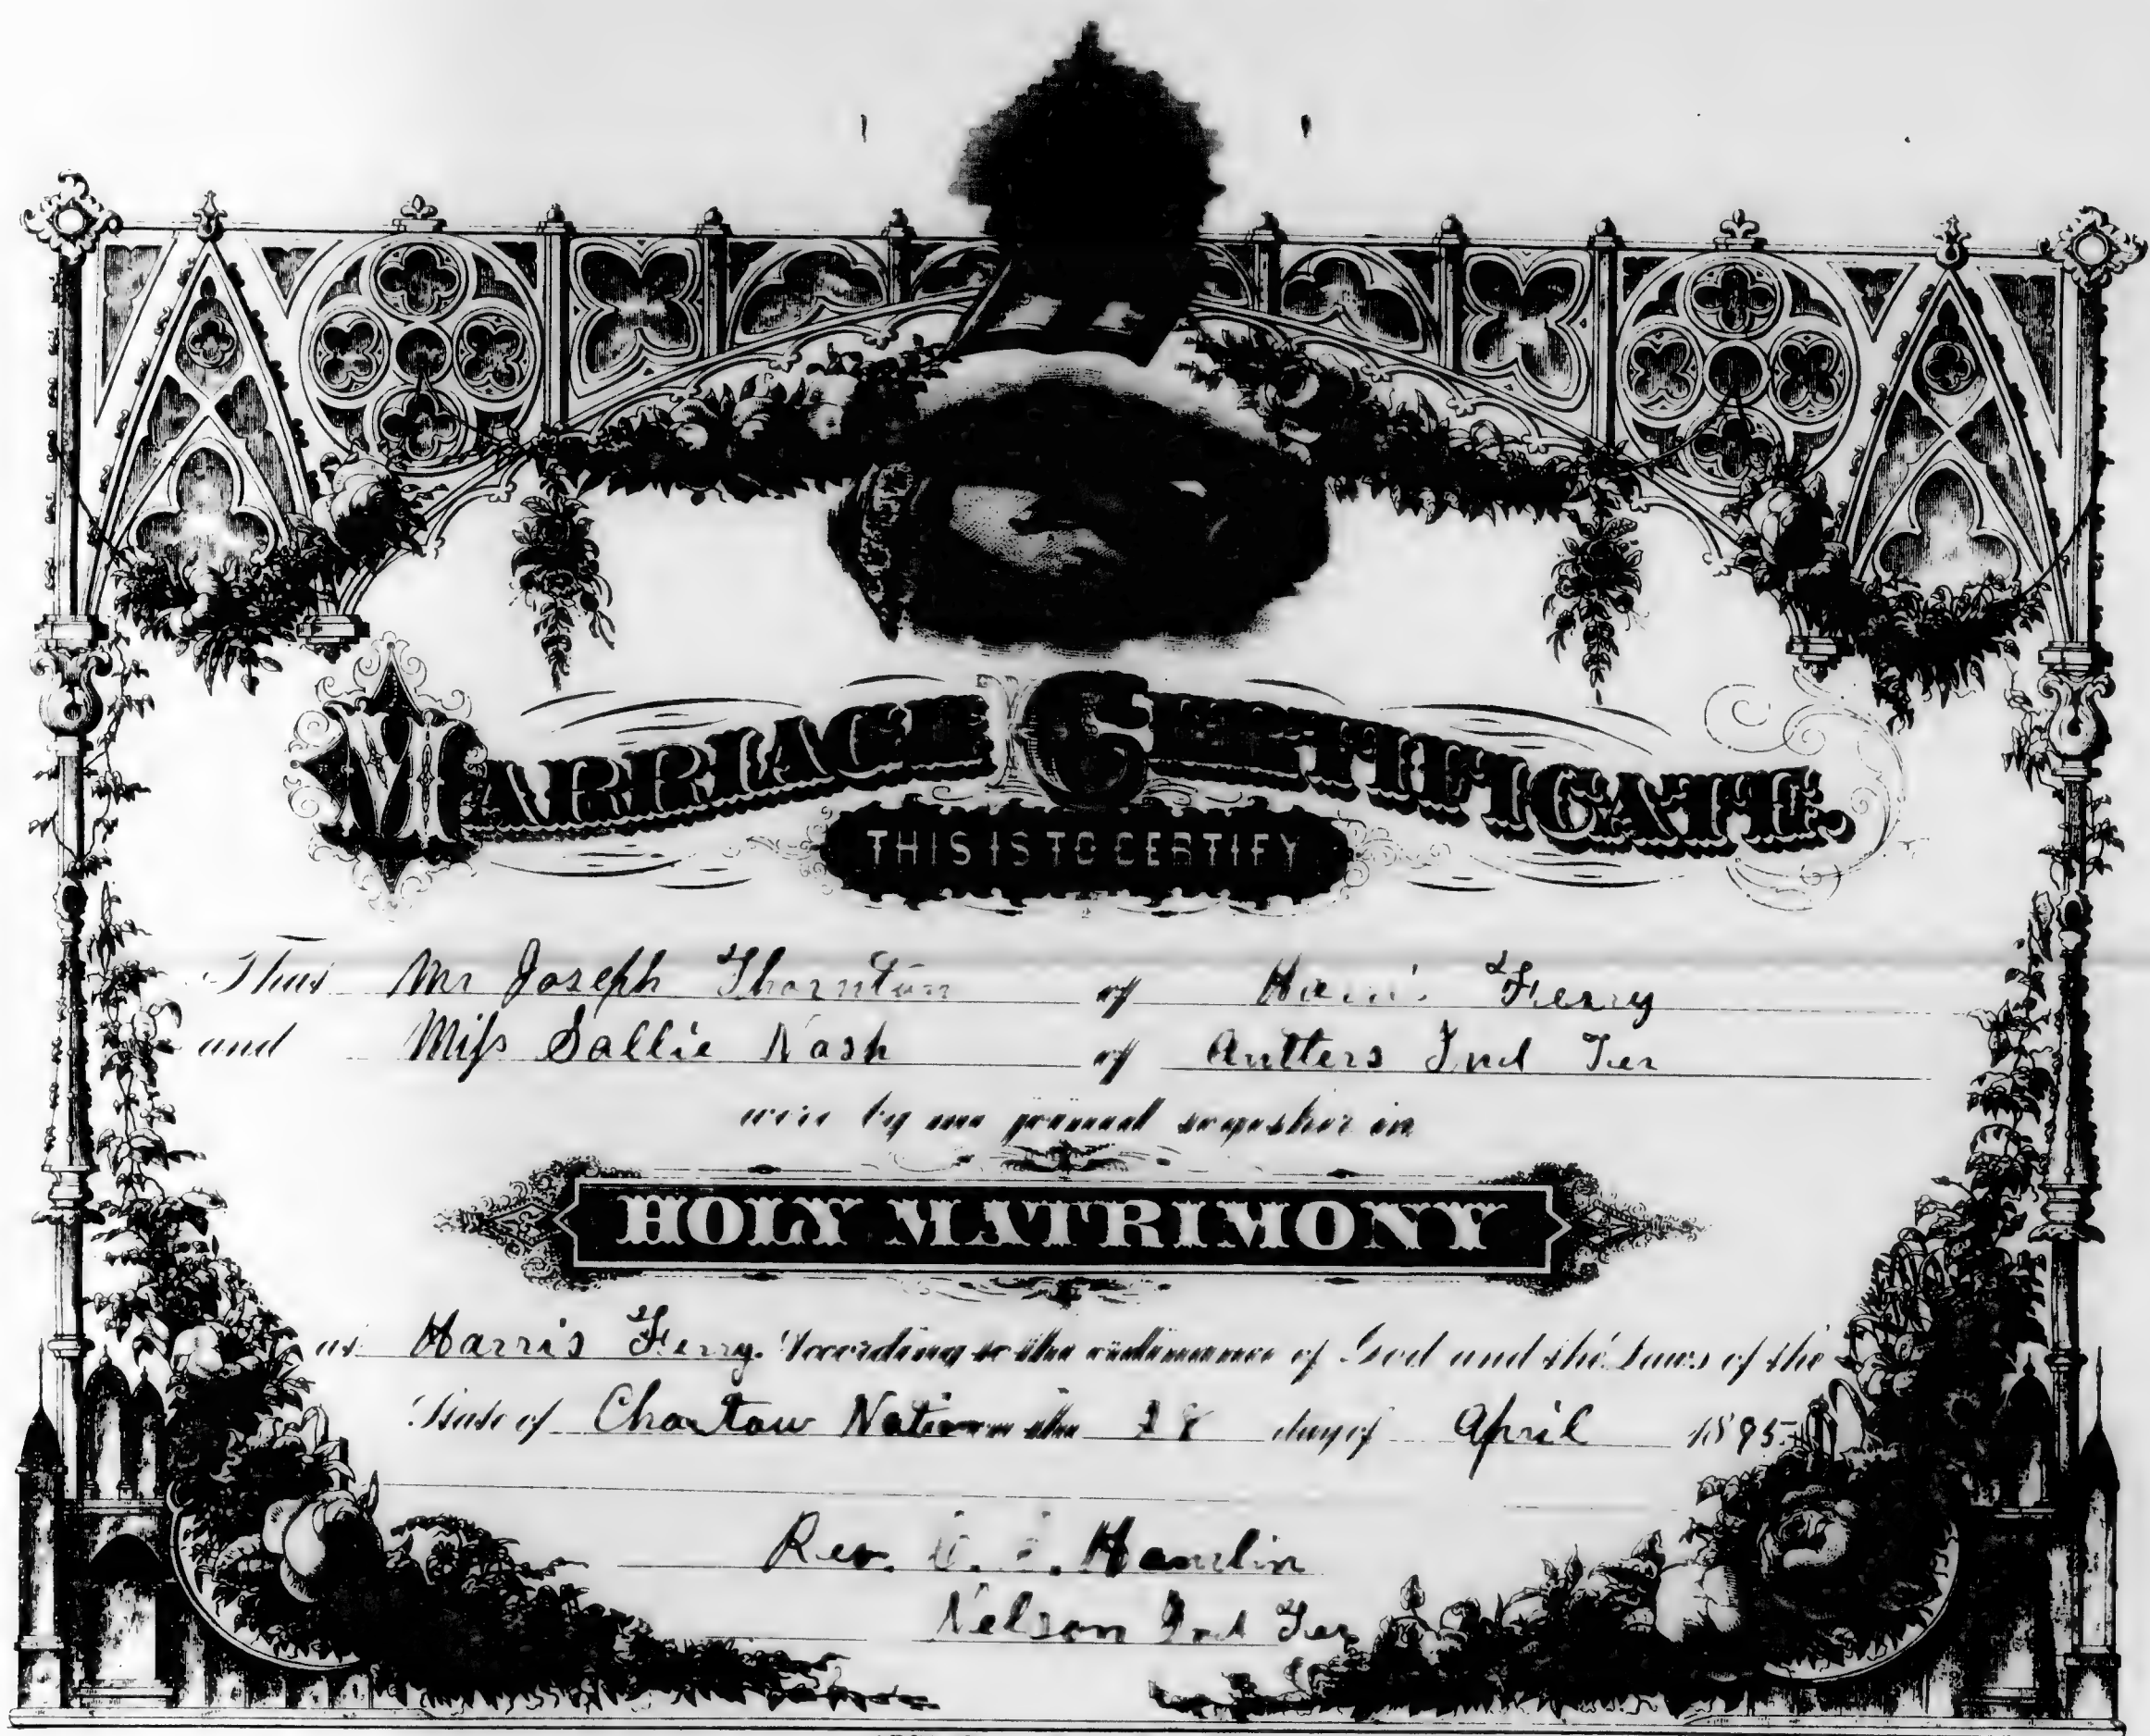 MARRIAGE CERTIFICATE.
THIS IS TO CERTIFY
That Mr Joseph Thornton of Harris Ferry
and Miſs Sallie Nash of Antlers Ind Ter
were by me joined together in
HOLY MATRIMONY
at Harris Ferry. According to the ordinance of God and the Laws of the
State of Choctaw Nation on the 28 day of April 1895
Rev. Hamlin
Nelson Ind Ter